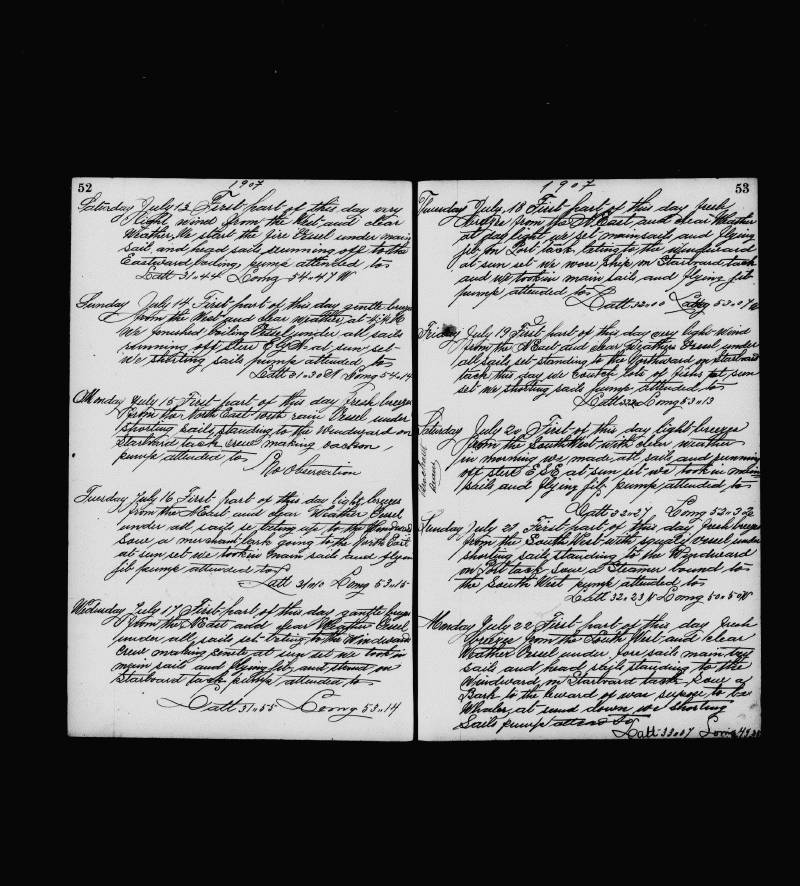 52
1907
Saturday July 13 First part of this day very
light wind from the West and clear
Weather, We start the fire Vessel under main
sail and head sails running off to the
Eastward boiling pump attended to
Latt 31.44 Long 54.47 W
Sunday July 14 First part of this day gentle breeze
from the West and clear weather, at 4
We finished boiling Vessel under all sails
running off stere at sun set
We shorting sails pump attended to
Latt 31.30 N Long 54.14
Monday July 15 First part of this day Fresh breeze
from the North East with rain Vessel under
shorting sails standing to the Windward on
Starbord tack crew making
pump attended to
No Observation
Tuesday July 16 First part of this day light breeze
from the N East and clear Weather Vessel
under all sails to the Windward
Saw a merchant bark going to the North East
at sun set we took in main sail and flying
jib pump attended to
Latt 31.10 Long 53.15
Wednesday July 17 First part of this day gentle breeze
from the N East and clear Weather Vessel
under all sails set to the Windward
Crew making at sun set we took in
main sail and flying jib, and stand on
Starboard tack pump attended to
Latt 31.55 Long 53.14
53
1907
July 18 First part of this day fresh
breeze from the N East and clear Weather
at day light we set mainsail and flying
jib, on Port tack to the windward
at sun set we Ship, on Starboard tack
and we took in main sail and flying jib
pump attended to
Latt 32.00 Long 53.07 W
Friday July 19 First part of this day very light wind
from the N East clear Weather Vessel under
all sails set standing to the Northward on Starboard
tack this day we lots of fish at sun
set we shorting sails pump attended to
Latt Long 53.13
Saturday July 20 First of this day light breeze
from the South West with clear weather
in morning we made all sail and running
off stere at sun set we took in main
sail and flying jib pump attended to
Latt 32.27 Long 52.32
Sunday July 21 First part of this day fresh breeze
from the South West with squaly Vessel under
shorting sails standing to the Wyndward
on Port tack Saw a Steamer bound to
the South West pump attended to
Latt 32.23 N Long 50.50 W
Monday July 22 First part of this day fresh
breeze from the South West and clear
Weather Vessel under fore sail main top
sail and head sails standing to the
Windward, on Starboard tack Saw a
Bark to the leward of was to be
Whaler, at sund down we shorting
Sails pump attend to
Latt 33.07 Long